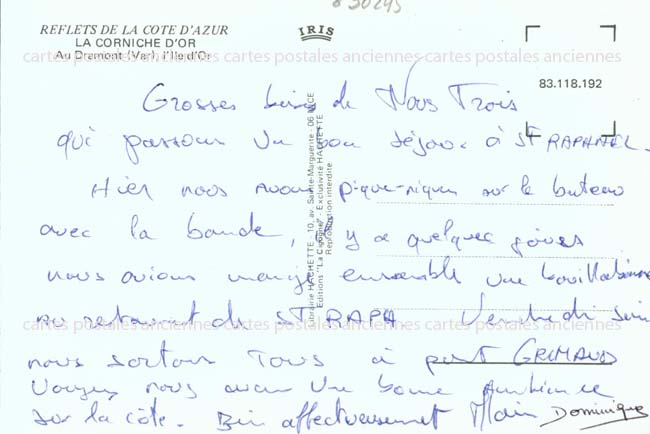 8 30245
REFLETS DE LA COTE D'AZUR
LA CORNICHE D'OR
Au Dramont (Var), l'Ile d'Or
IRIS
83.118.192
cartes postales anciennes cartes postales anciennes cartes postales anciennes
Grosses bises de Nous Trois
qui passons un bon séjour à ST RAPHAEL.
Hier nous avons pique-niqué sur le bateau
avec la bande, il y a quelques jours
nous avions mangé ensemble une bouillabaisse
au restaurant de ST RAPHA Vendredi soir
cartes postales anciennes cartes postales anciennes cartes postales anciennes
nous sortons Tous à port GRIMAUD
Voyez nous avons une bonne Ambiance
sur la côte. Bien affectueusement Alain Dominique
Librairie HACHETTE - 10, av. Sainte-Marguerite - 06 NICE
Editions "La Cigogne" - Exclusivité HACHETTE
Reproduction interdite